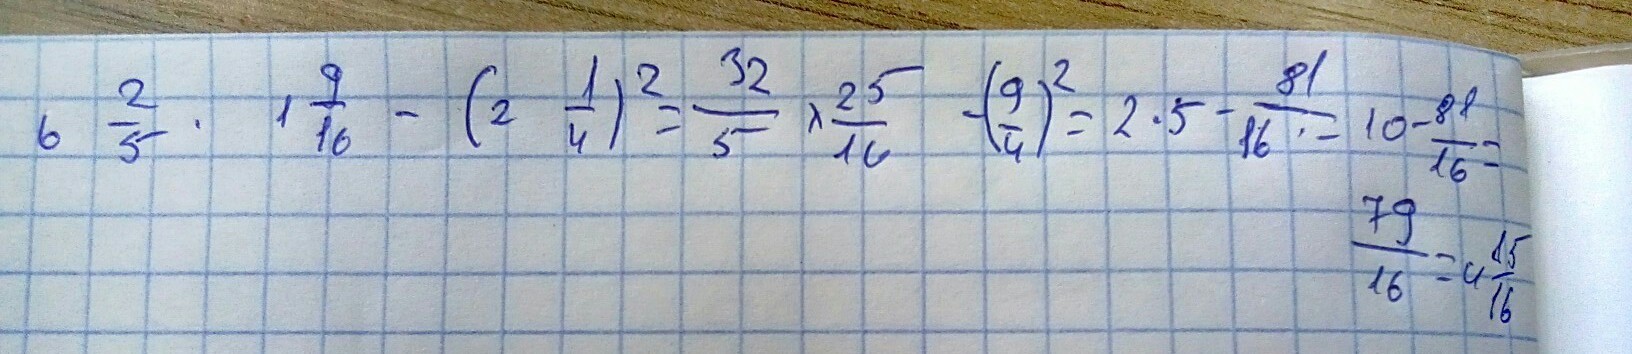 6 2/5 · 1 9/16 - (2 1/4)² = 32/5 × 25/16 - (9/4)² = 2·5 - 81/16 = 10 - 81/16 =
79/16 = 4 15/16